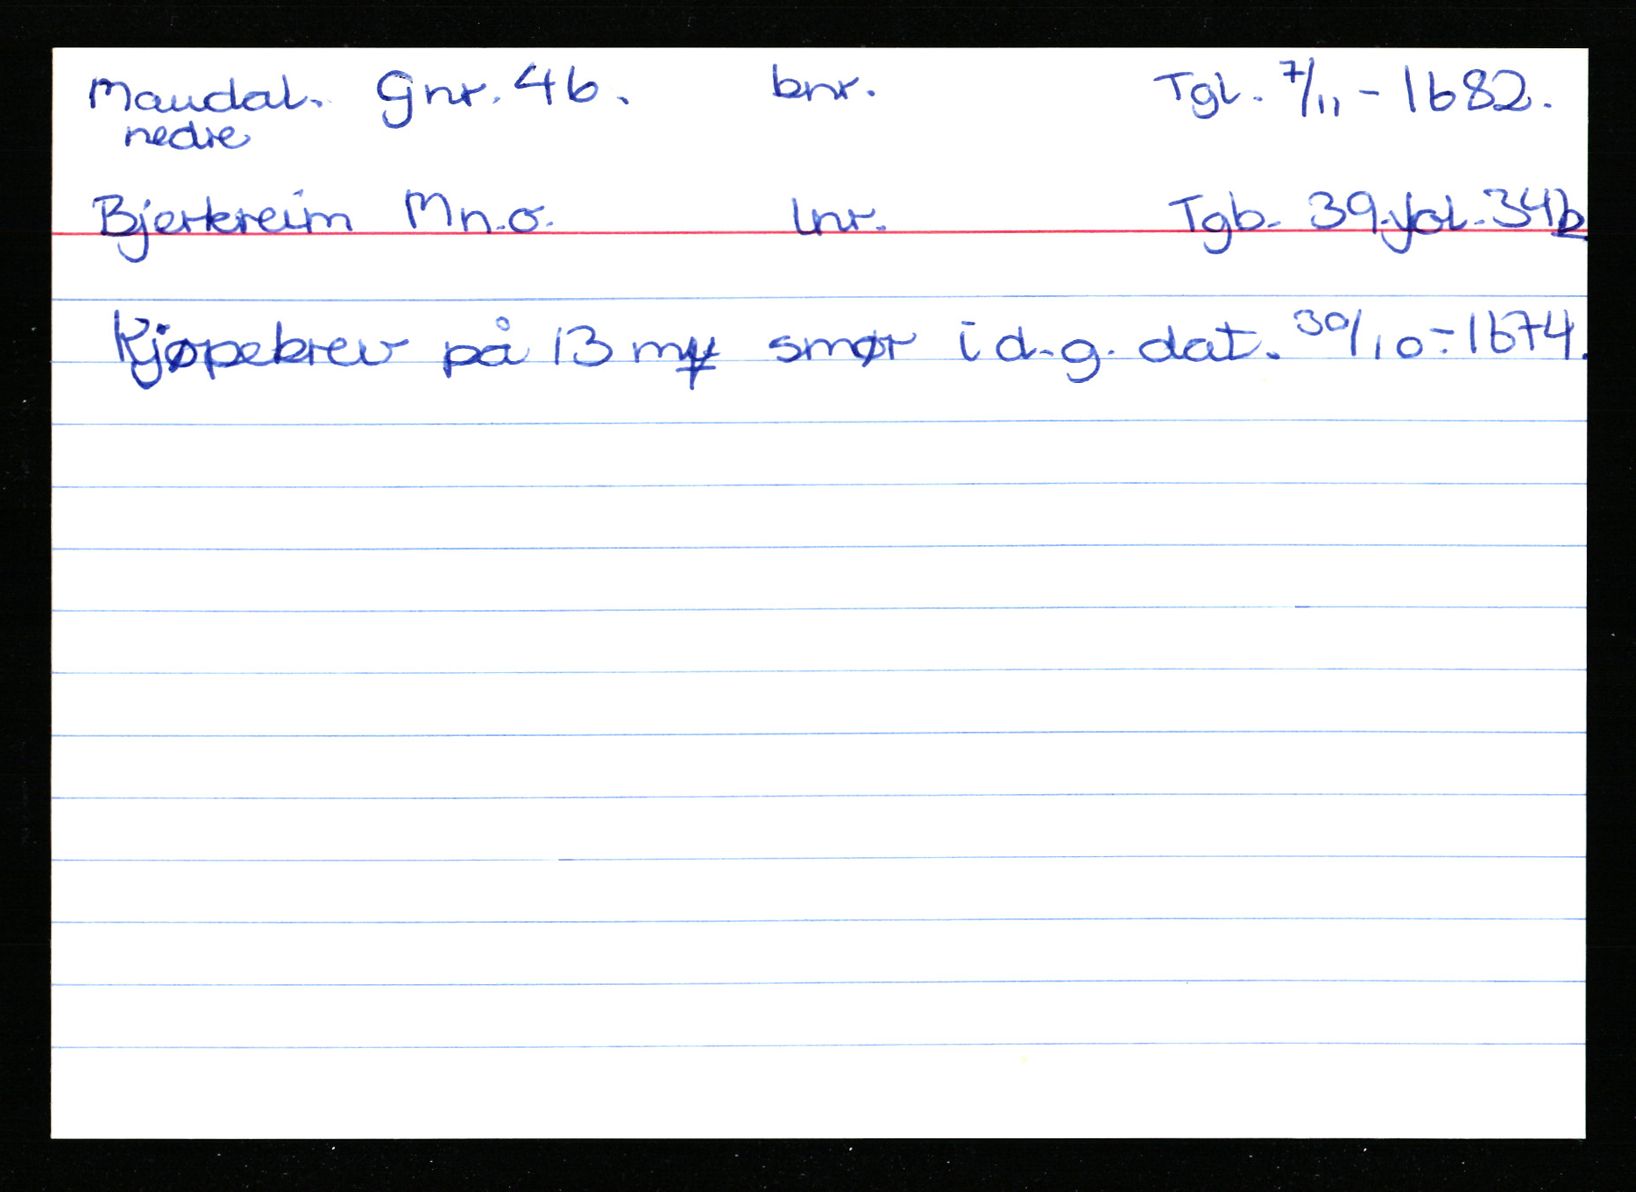 Maudal. Gnr. 46. bnr. Tgl. 7/11 - 1682.
nedre
Bjerkreim Mn.o. lnr. Tgb. 39. fol. 34b
Kjøpebrev på 13 mƒ smør i d.g. dat. 30/10 - 1674.